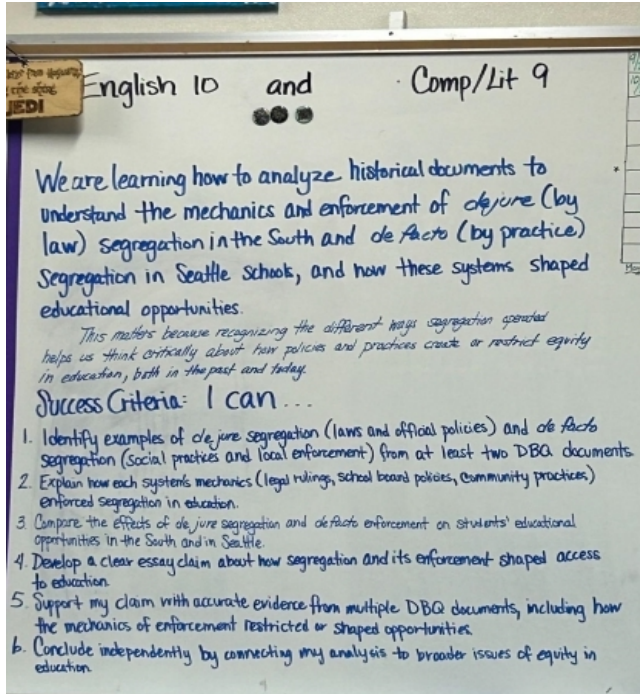 JEDI
English 10 and Comp/Lit 9
We are learning how to analyze historical documents to
understand the mechanics and enforcement of de jure (by
law) segregation in the South and de facto (by practice)
segregation in Seattle Schools, and how these systems shaped
educational opportunities.
This matters because recognizing the different ways segregation operated
helps us think critically about how policies and practices create or restrict equity
in education, both in the past and today.
Success Criteria: I can...
1. Identify examples of de jure segregation (laws and official policies) and de facto
segregation (social practices and local enforcement) from at least two DBQ documents.
2. Explain how each system's mechanics (legal rulings, school board policies, community practices)
enforced segregation in education.
3. Compare the effects of de jure segregation and de facto enforcement on students' educational
opportunities in the South and in Seattle.
4. Develop a clear essay claim about how segregation and its enforcement shaped access
to education.
5. Support my claim with accurate evidence from multiple DBQ documents, including how
the mechanics of enforcement restricted or shaped opportunities.
6. Conclude independently by connecting my analysis to broader issues of equity in
education.